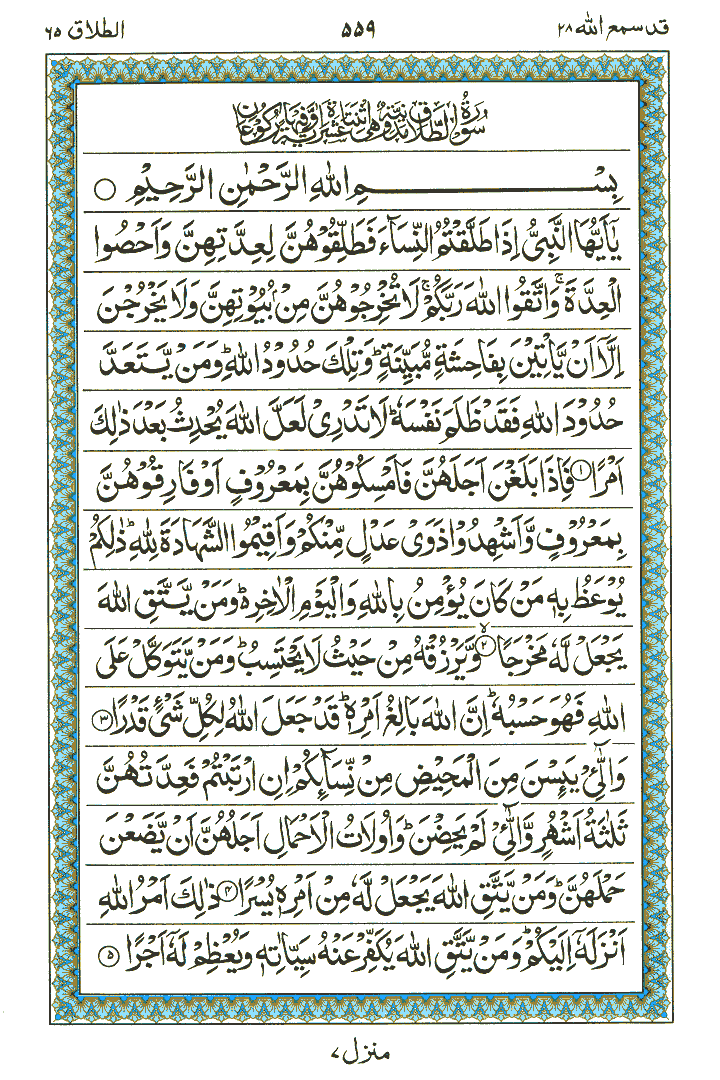 قد سمع الله ٢٨
٥٥٩
الطلاق ٦٥
سُوْرَةُ الطَّلَاقِ مَدَنِيَّةٌ وَّهِيَ اثْنَتَا عَشْرَةَ اٰيَةً وَّفِيْهَا رُكُوْعَانِ
بِسْمِ اللهِ الرَّحْمٰنِ الرَّحِيْمِ ○
يٰۤاَيُّهَا النَّبِيُّ اِذَا طَلَّقْتُمُ النِّسَآءَ فَطَلِّقُوْهُنَّ لِعِدَّتِهِنَّ وَاَحْصُوا
الْعِدَّةَ ۚ وَاتَّقُوا اللهَ رَبَّكُمْ ۚ لَا تُخْرِجُوْهُنَّ مِنْۢ بُيُوْتِهِنَّ وَلَا يَخْرُجْنَ
اِلَّاۤ اَنْ يَّاْتِيْنَ بِفَاحِشَةٍ مُّبَيِّنَةٍ ؕ وَتِلْكَ حُدُوْدُ اللهِ ؕ وَمَنْ يَّتَعَدَّ
حُدُوْدَ اللهِ فَقَدْ ظَلَمَ نَفْسَهٗ ؕ لَا تَدْرِىْ لَعَلَّ اللهَ يُحْدِثُ بَعْدَ ذٰلِكَ
اَمْرًا ۝١ فَاِذَا بَلَغْنَ اَجَلَهُنَّ فَاَمْسِكُوْهُنَّ بِمَعْرُوْفٍ اَوْ فَارِقُوْهُنَّ
بِمَعْرُوْفٍ وَّاَشْهِدُوْا ذَوَىْ عَدْلٍ مِّنْكُمْ وَاَقِيْمُوا الشَّهَادَةَ لِلّٰهِ ؕ ذٰلِكُمْ
يُوْعَظُ بِهٖ مَنْ كَانَ يُؤْمِنُ بِاللهِ وَالْيَوْمِ الْاٰخِرِ ؕ وَمَنْ يَّتَّقِ اللهَ
يَجْعَلْ لَّهٗ مَخْرَجًا ۝٢ۙ وَّيَرْزُقْهُ مِنْ حَيْثُ لَا يَحْتَسِبُ ؕ وَمَنْ يَّتَوَكَّلْ عَلَى
اللهِ فَهُوَ حَسْبُهٗ ؕ اِنَّ اللهَ بَالِغُ اَمْرِهٖ ؕ قَدْ جَعَلَ اللهُ لِكُلِّ شَىْءٍ قَدْرًا ۝٣
وَالّٰٓـِٔىْ يَئِسْنَ مِنَ الْمَحِيْضِ مِنْ نِّسَآئِكُمْ اِنِ ارْتَبْتُمْ فَعِدَّتُهُنَّ
ثَلٰثَةُ اَشْهُرٍ وَّالّٰٓـِٔىْ لَمْ يَحِضْنَ ؕ وَاُولَاتُ الْاَحْمَالِ اَجَلُهُنَّ اَنْ يَّضَعْنَ
حَمْلَهُنَّ ؕ وَمَنْ يَّتَّقِ اللهَ يَجْعَلْ لَّهٗ مِنْ اَمْرِهٖ يُسْرًا ۝٤ ذٰلِكَ اَمْرُ اللهِ
اَنْزَلَهٗۤ اِلَيْكُمْ ؕ وَمَنْ يَّتَّقِ اللهَ يُكَفِّرْ عَنْهُ سَيِّاٰتِهٖ وَيُعْظِمْ لَهٗۤ اَجْرًا ۝٥
منزل ٧